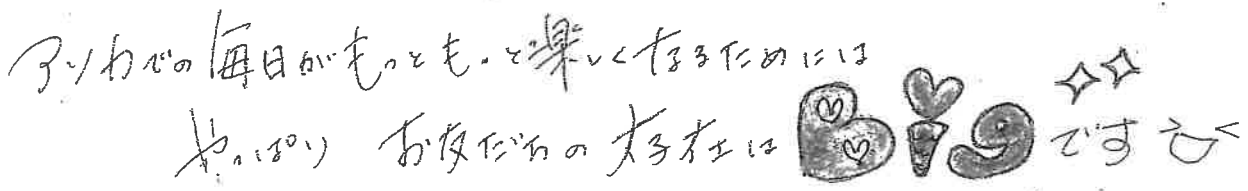 アソカでの毎日がもっともっと楽しくなるためには
やっぱり お友だちの存在は Big です